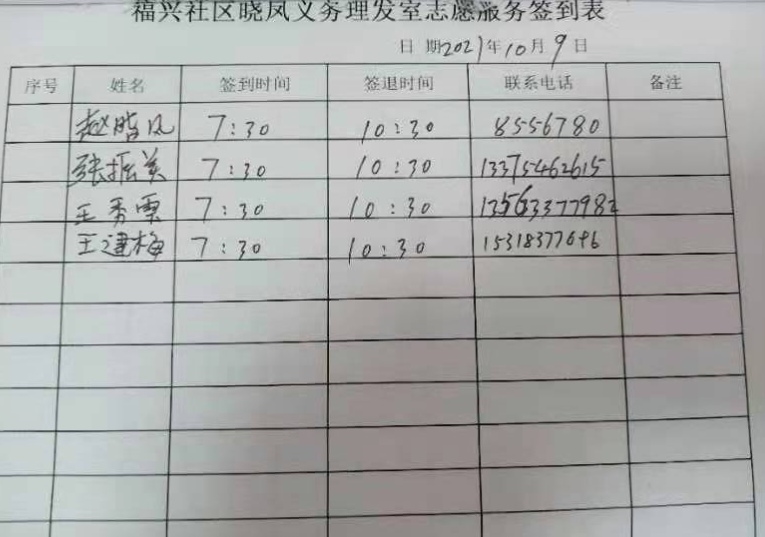 福兴社区晓凤义务理发室志愿服务签到表
日 期2021年10月9日
序号 姓名 签到时间 签退时间 联系电话 备注
赵晓凤 7:30 10:30 8556780
张振美 7:30 10:30 13375462615
王秀 7:30 10:30 13563377982
王建梅 7:30 10:30 15318377696